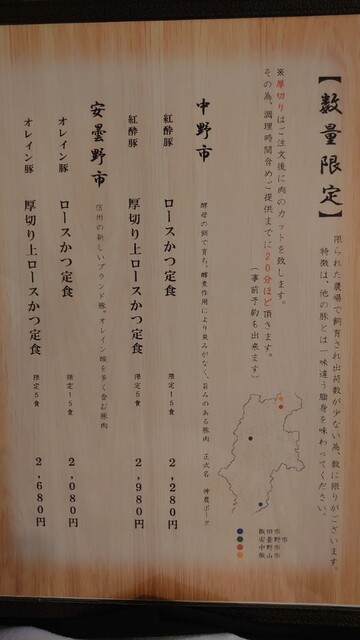 【数量限定】
限られた農場で飼育され出荷数が少ない為、数に限りがございます。
特徴は、他の豚とは一味違う脂身を味わってください。
※厚切りはご注文後に肉のカットを致します。
その為、調理時間含めご提供までに20分ほど頂きます。
(事前予約も出来ます)
飯田市
安曇野市
中野市
飯山市
中野市
酵母の餌で育ち、酵素作用により臭みがなく、旨みのある豚肉 正式名 神農ポーク
紅酔豚 ロースかつ定食 限定15食 2,280円
紅酔豚 厚切り上ロースかつ定食 限定5食 2,980円
安曇野市
信州の新しいブランド豚。オレイン酸を多く含む豚肉
オレイン豚 ロースかつ定食 限定15食 2,080円
オレイン豚 厚切り上ロースかつ定食 限定5食 2,680円